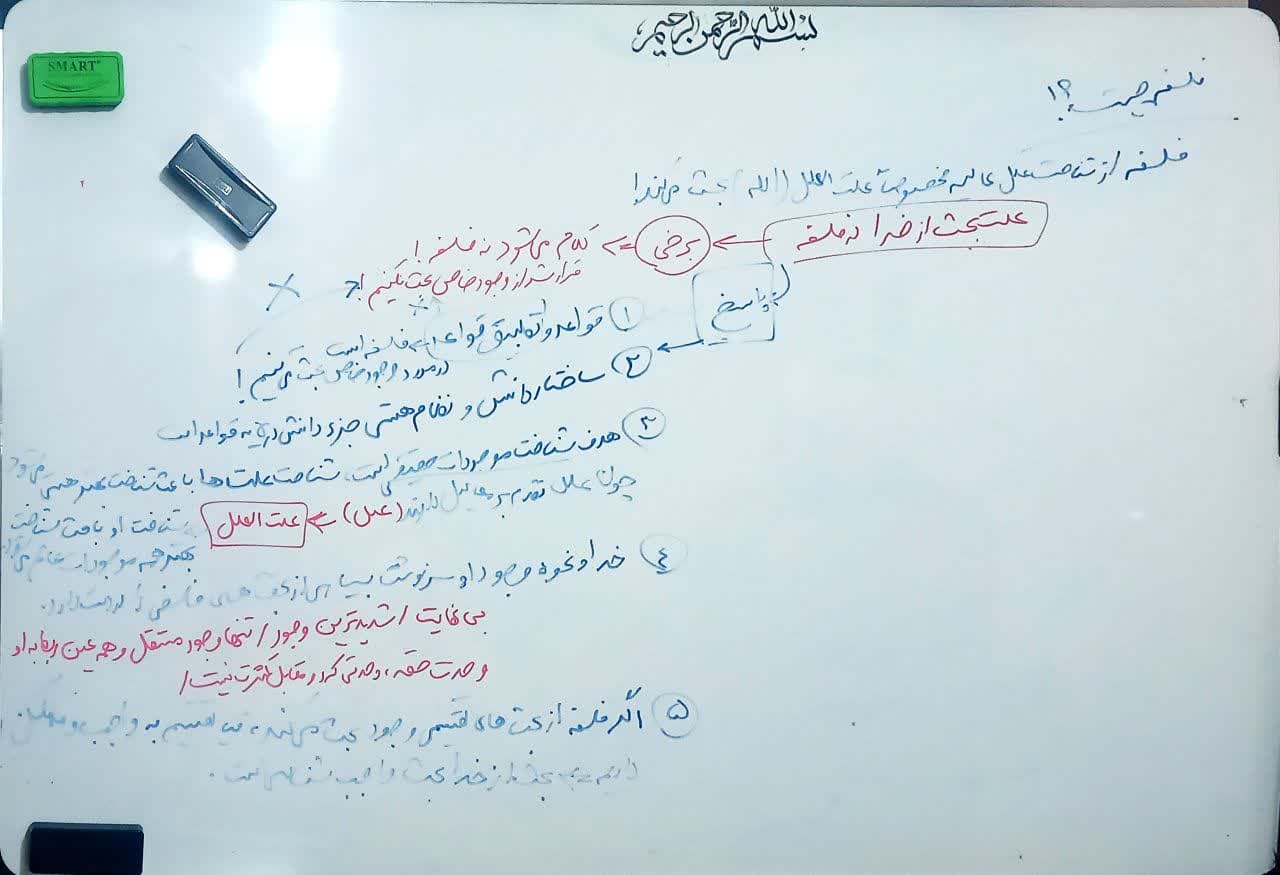 بسم الله الرحمن الرحیم
SMART
فلسفه چیست؟!
فلسفه از شناخت علل عالیه مخصوصاً علت العلل (الله) بحث می‌کند!
علت بحث از خدا در فلسفه ← برخی ← کلام می‌شود نه فلسفه!
قرار شد از وجود خاص بحث نکنیم!
پاسخ
① قواعد و تطبیق قواعد ← فلسفه است
در مورد وجود خاص بحث می‌کنیم!
② ساختار دانش و نظام هستی جزء دانش قواعد است
③ هدف شناخت موجودات حقیقی است، شناخت علت‌ها باعث شناخت بهتر هستی می‌شود
چون علل تقدم بر معالیل دارند (علل) ← علت العلل شناخت او باعث شناخت
بهتر همه موجودات عالم
④ خدا و نحوه وجود او سرنوشت بسیاری از بحث های فلسفی را در دست دارد.
بی نهایت / شدیدترین وجود / تنها وجود مستقل و همه عین ربط به او
وحدت حقه، وحدتی که در مقابل کثرت نیست /
⑤ اگر فلسفه از بحث های تقسیمی وجود بحث می‌کند، تقسیم به واجب و ممکن
داریم بحث از خدا بحث واجب شناسی است.